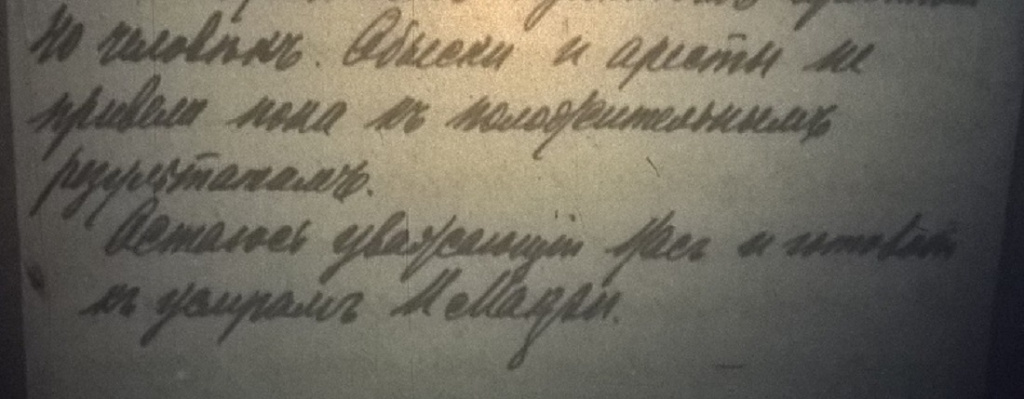 40 человѣкъ. Обыски и аресты не
привели пока къ положительнымъ
результатамъ.
Остаюсь уважающій Васъ и готовый
къ услугамъ